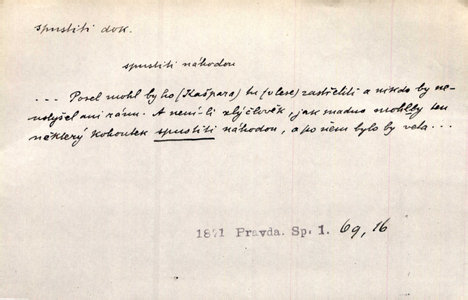 spustiti dok.
spustiti náhodou
... Posel mohl by ho (Kašpara) tu (v lese) zastřeliti a nikdo by ne-
uslyšel ani ránu. A není-li zlý člověk, jak snadno mohl by ten
některý kohoutek spustiti náhodou, a po něm bylo by veta...
1871 Pravda. Sp. 1. 69, 16